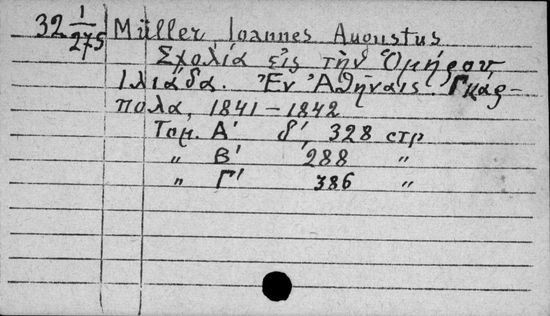 32 1/275 Müller, Ioannes Augustus
Σχολία εἰς τὴν Ὁμήρου
Ιλιάδα. Ἐν Ἀθῆναις. Γκάρ-
πολα, 1841-1842
Τομ. Α' δ', 328 στρ
„ Β' 288 „
„ Γ' 386 „